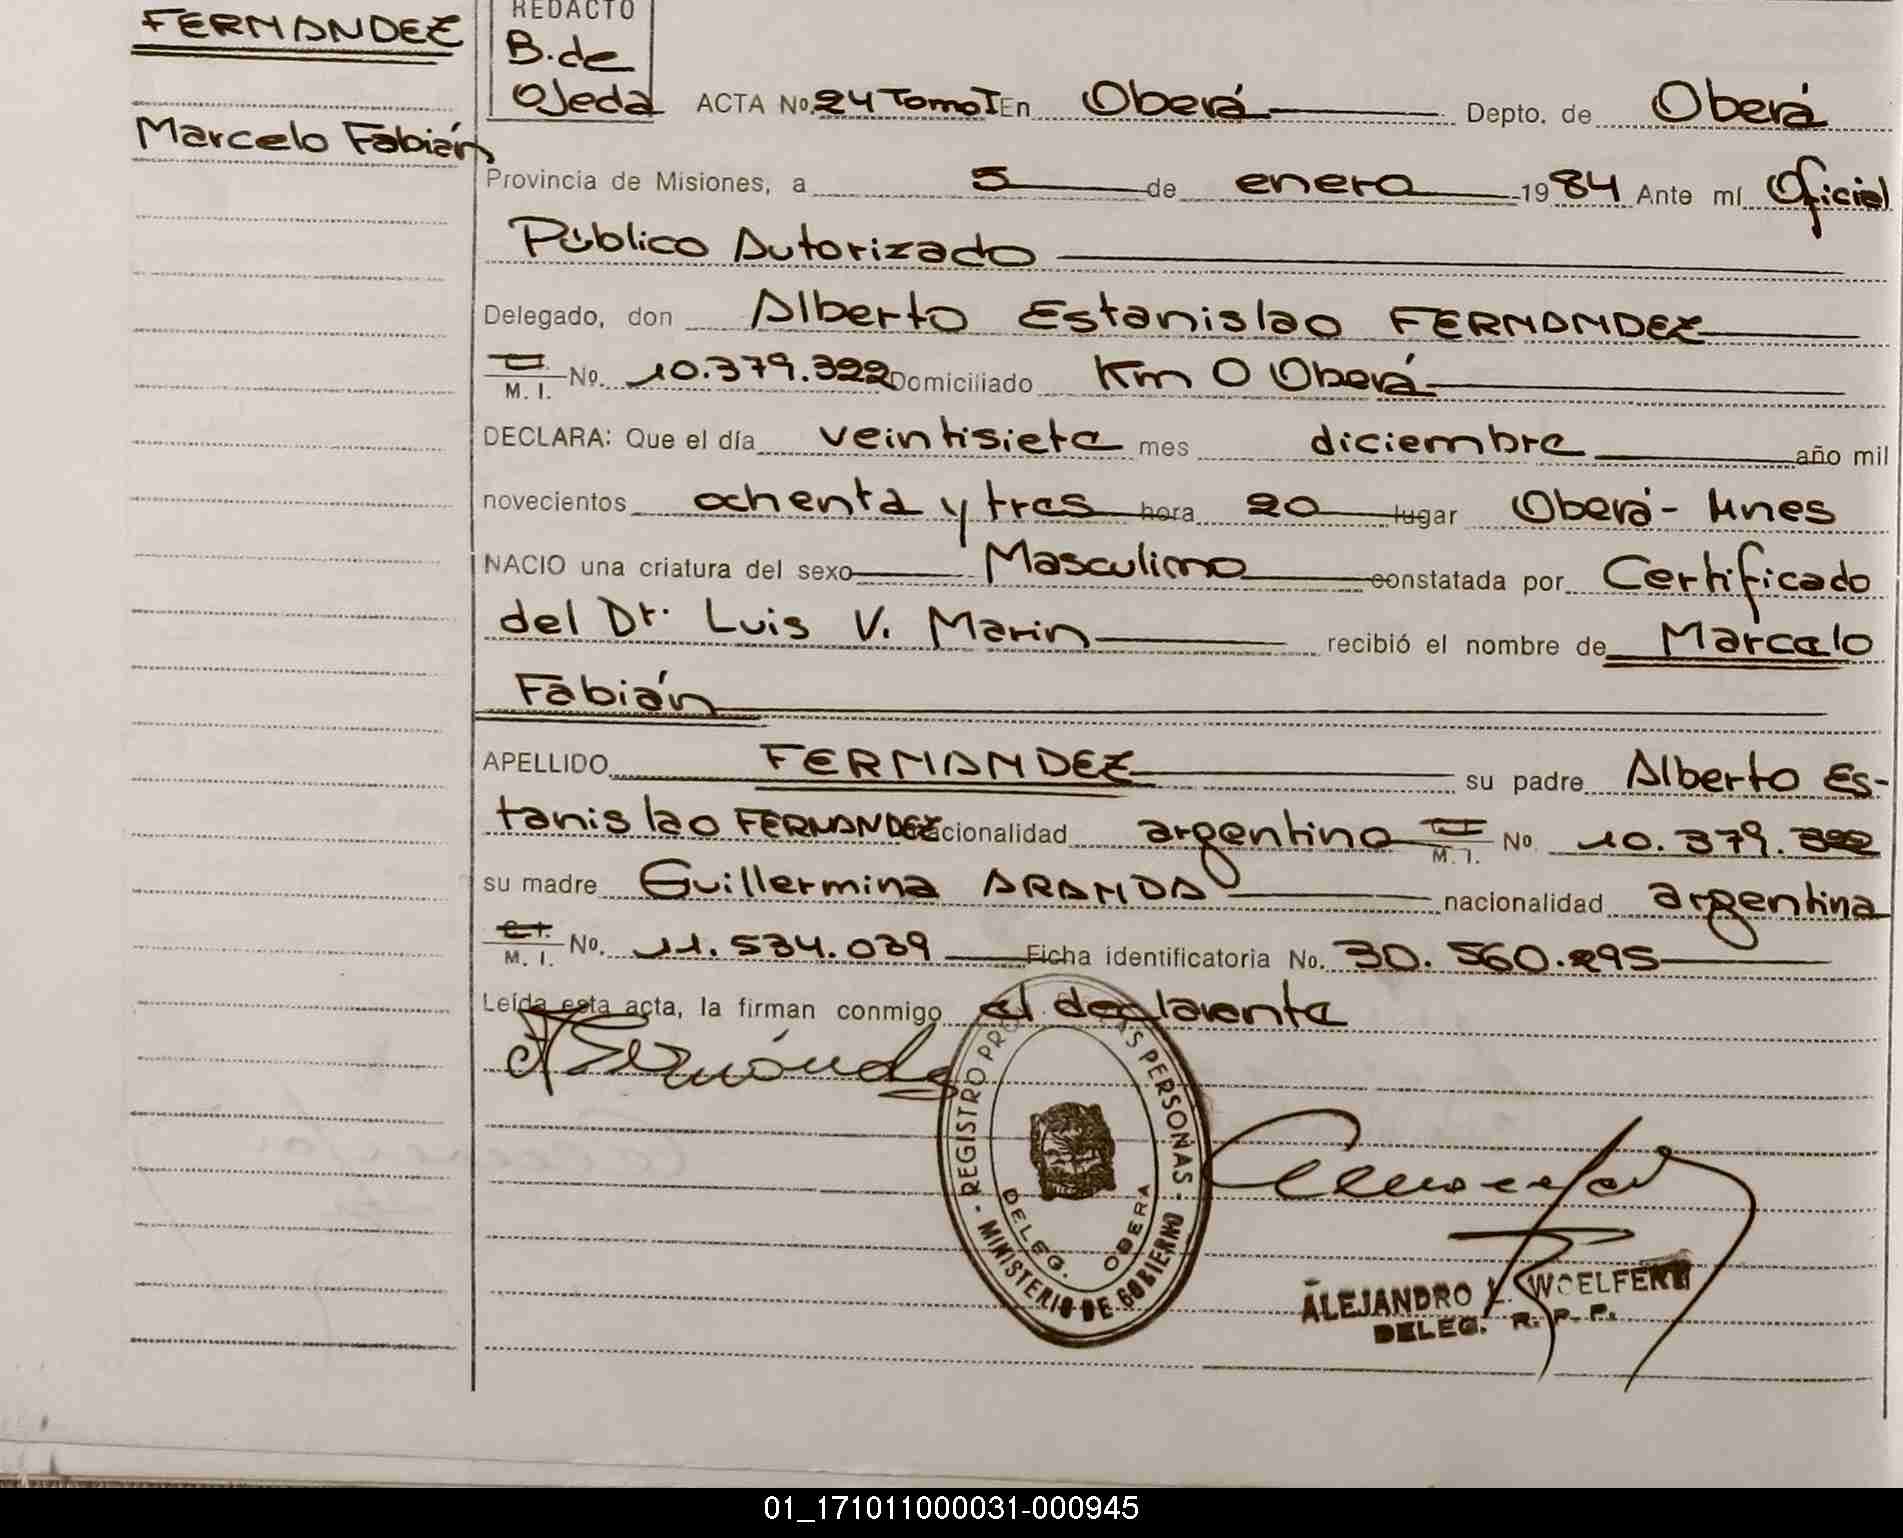 FERNANDEZ
Marcelo Fabián
REDACTO
B. de
Ojeda
ACTA No. 24 Tomo I En Oberá Depto. de Oberá
Provincia de Misiones, a 5 de enero 1984 Ante mí Oficial
Público Autorizado
Delegado, don Alberto Estanislao FERNANDEZ
M. I. No. 10.379.322 Domiciliado Km 0 Oberá
DECLARA: Que el día veintisiete mes diciembre año mil
novecientos ochenta y tres hora 20 lugar Oberá - Mnes
NACIO una criatura del sexo Masculino constatada por Certificado
del Dr. Luis V. Marin recibió el nombre de Marcelo
Fabián
APELLIDO FERNANDEZ su padre Alberto Es-
tanislao FERNANDEZ nacionalidad argentino M. I. No 10.379.322
su madre Guillermina ARANDA nacionalidad argentina
M. I. No. 11.534.039 Ficha identificatoria No. 30.560.295
Leída esta acta, la firman conmigo el declarante
REGISTRO PERSONAS
DELEG. OBERA
MINISTERIO DE GOBIERNO
ALEJANDRO L. WOELFERT
DELEG. R. P. P.
01_171011000031-000945